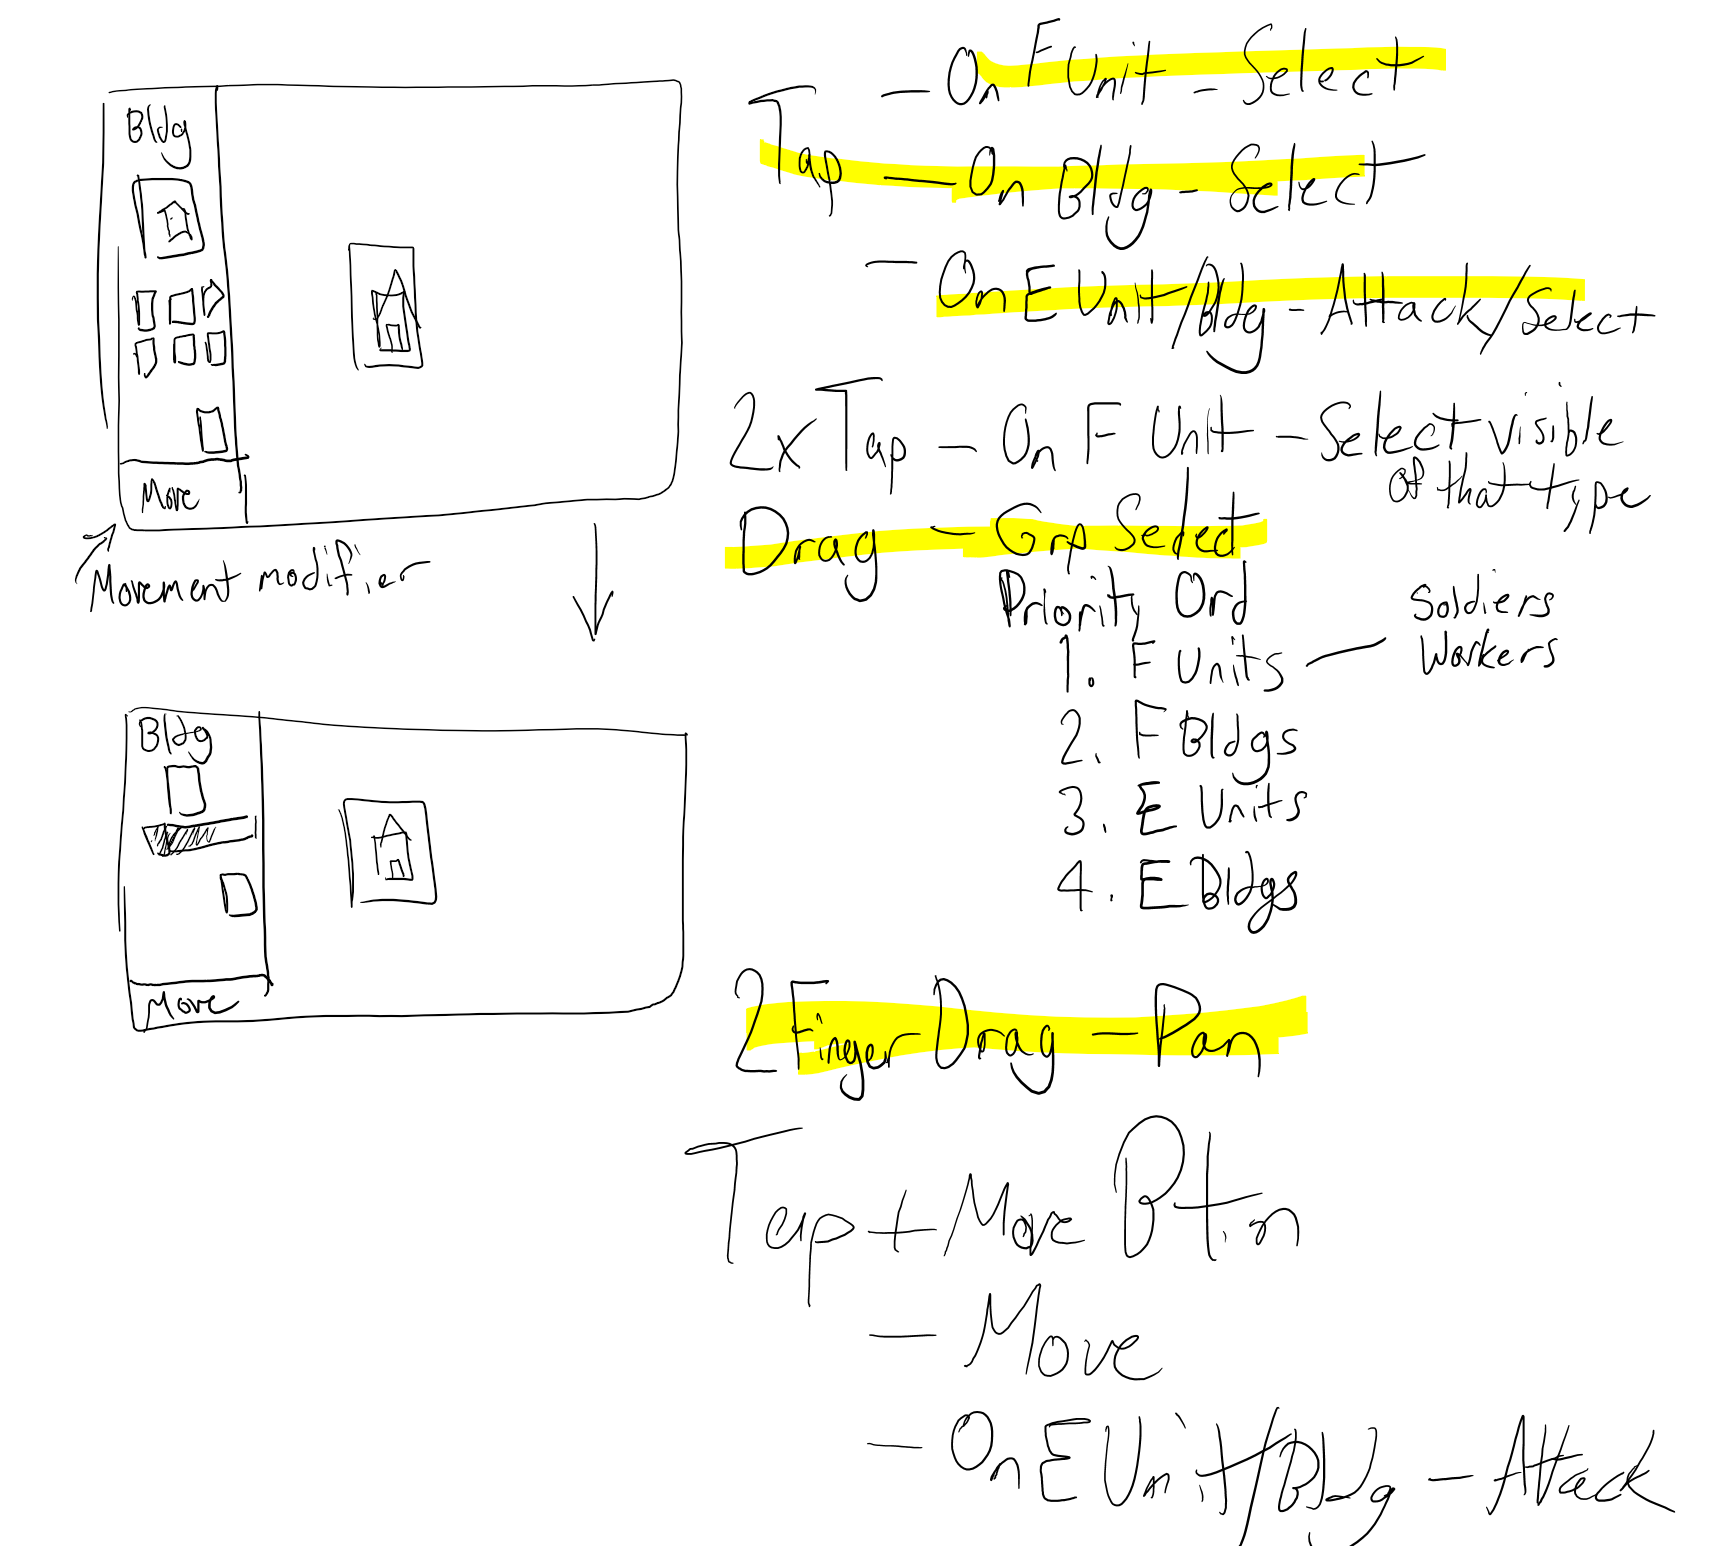 Bldg
Move
Movement modifier
Bldg
Move
Tap - On F Unit - Select
- On Bldg - Select
- On E Unit/Bldg - Attack/Select
2x Tap - On F Unit - Select visible
of that type
Drag - Grp Select
Priority Ord
1. F Units - Soldiers
Workers
2. F Bldgs
3. E Units
4. E Bldgs
2 Finger Drag - Pan
Tap + Move Btn
- Move
- On E Unit/Bldg - Attack